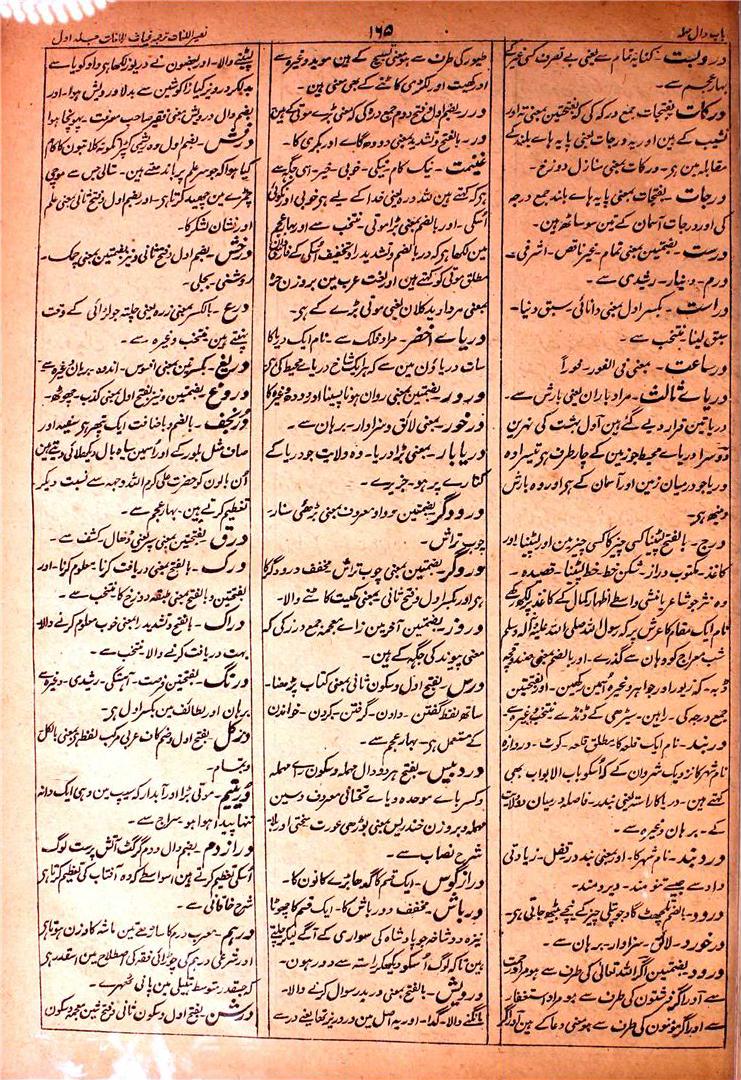 باب دال مہملہ
۱۶۵
نصیر اللغات ترجمہ غیاث اللغات جلد اول
دروبست۔ کنایہ تمام سے یعنی بے تصرف کسی غیر کے
بہار عجم سے۔
درکات۔ بفتحات جمع درکہ کی کہ بفتحتین بمعنی تہ اور
نشیب کے ہین اور یہ درجات یعنی پایہ ہاے بلند کے
مقابلہ مین ہے۔ درکات بمعنی منازل دوزخ۔
درجات۔ بفتحات بمعنی پایہ ہاے بلند جمع درجہ
کی اور درجات آسمان کے تین سو ساٹھ ہین۔
درست۔ بضمتین بمعنی تمام۔ غیر ناقص۔ اشرفی۔
درم۔ دینار۔ رشیدی سے۔
دراست۔ بکسر اول بمعنی دانائی۔ سبق دنیا۔
سبق لینا۔ منتخب سے۔
درساعت۔ بمعنی فی الفور۔ فوراً
دریاے ثالث۔ مراد باران یعنی بارش سے۔
دریا تین قرار دیے گئے ہین اول بہشت کی نہرین
دوسرا دریاے محیط جو زمین کے چار طرف ہے تیسرا وہ
دریا جو درمیان زمین اور آسمان کے ہے اور وہ بارش
مینہ ہے۔
درج۔ بالفتح لپیٹنا کسی چیز کا کسی چیز مین اور لپیٹنا اور
کاغذ۔ مکتوب دراز۔ شکن خط۔ خط لپیٹنا۔ قصیدہ۔
وہ نثر جو شاعر یا منشی واسطے اظہار کمال کے کاغذ پر لکھ رکھے
نام ایک مقام کا عرش پر کہ رسول اللہ صلی اللہ علیہ وآلہ وسلم
شب معراج کو وہان سے گذرے۔ اور بالضم بمعنی صندوقچہ
ڈبہ۔ کہ زیور اور جواہر وغیرہ اُسمین رکھین۔ اور بفتحتین
جمع درجہ کی۔ راہین۔ سیڑھی کے ڈنڈے۔ منتخب وغیرہ سے۔
دربند۔ نام ایک قلعہ کا۔ مطلق قلعہ۔ کوٹ۔ دروازہ
نام شہر کا نزدیک شروان کے کہ اُسکو باب الابواب بھی
کہتے ہین۔ دریا کا راستہ یعنی بندر۔ فاصلہ درمیان دو ولایت
کے۔ برہان وغیرہ سے۔
دروند۔ نام شہر کا۔ اور بمعنی بند در یعنی قفل۔ زیادتی
داد سے جیسے تنومند۔ دیرومند۔
درود۔ بالضم تلچھٹ گاد جو پتلی چیز کے نیچے بیٹھ جاتی ہے۔
درخورد۔ لائق۔ سزاوار۔ برہان سے۔
درود۔ بضمتین اگر اللہ تعالیٰ کی طرف سے ہو مراد رحمت
سے اور اگر فرشتون کی طرف سے ہو مراد استغفار
سے اور اگر مؤمنون کی طرف سے ہو معنی دعا کے ہین اور اگر
طیور کی طرف سے ہو معنی تسبیح کے ہین۔ موید وغیرہ سے
اور کھیت اور لکڑی کاٹنے کے بھی معنی ہین۔
درر۔ بضم اول و فتح دوم جمع در کی کہ بمعنی بڑے موتی کے ہین
در۔ بالفتح و تشدید بمعنی دودھ گاے اور بکری کا۔
غنیمت۔ نیک کام۔ نیکی۔ خوبی۔ خیر۔ اسی جگہ سے
ہے کہ کہتے ہین للہ درہ یعنی خدا کے لیے ہے خوبی اور نیکوئی
اُسکی۔ اور بالضم بمعنی بڑا موتی۔ منتخب سے اور بہار عجم
مین لکھا ہے کہ در بالضم و تشدید را و تخفیف اُسکی کے فارسی مین
مطلق موتی کو کہتے ہین اور لغت عرب مین بروزن حر
بمعنی مروارید کلان یعنی موتی بڑے کے ہے۔
دریاے اخضر۔ مراد فلک سے۔ نام ایک دریا کا
سات دریاؤن مین سے کہ ہر ایک شاخ دریاے محیط کی ہے
درور۔ بضمتین بمعنی روان ہونا پسینا اور دودھ وغیرہ کا
درخور۔ بمعنی لائق و سزاوار۔ برہان سے۔
دریابار۔ بمعنی بڑا دریا۔ وہ ولایت جو دریا کے
کنارے پر ہو۔ جزیرے۔
درودگر۔ بضمتین و واو معروف بمعنی بڑھئی سنار۔
چوب تراش۔
دروگر۔ بضمتین بمعنی چوب تراش مخفف درودگر کا
ہے اور بکسر اول و فتح ثانی بمعنی کھیت کاٹنے والا۔
دروز۔ بضمتین آخر مین زاے معجمہ جمع درز کی کہ
معنی پیوند کی جگہ کے ہین۔
درس۔ بفتح اول و سکون ثانی بمعنی کتاب پڑھنا۔
ساتھ لفظ گفتن۔ دادن۔ گرفتن۔ کردن۔ خواندن
کے مستعمل ہے۔ بہار عجم سے۔
دردبیس۔ بفتح ہر دو دال مہملہ و سکون راے مہملہ
و کسر باے موحدہ و یاے تحتانی معروف و سین
مہملہ بروزن خندریس بمعنی بوڑھی عورت سختی اور بلا۔
شرح نصاب سے۔
درازگوس۔ ایک قسم کا گدھا بڑے کانون کا۔
درباش۔ مخفف دورباش کا۔ ایک قسم کا چھوٹا
نیزہ دو شاخہ جو بادشاہ کی سواری کے آگے لیکر چلتے
ہین تاکہ لوگ اُسکو دیکھکر راستہ سے دور ہون۔
درویش۔ بالفتح بمعنی در بدر سوال کرنے والا۔
مانگنے والا۔ گدا۔ اور یہ اصل مین درریز تھا یعنے در سے
لپٹنے والا۔ اور بعضون نے دریوز لکھا ہے واو کو یا سے
بدلکر درویز کیا زا کو شین سے بدلا درویش ہوا۔ اور
بضم دال درویش بمعنی فقیر صاحب معرفت۔ پہونچا ہوا
درفش۔ بضم اول وہ ریشمی کپڑا کہ گوٹہ کلابتون کا کام
کیا ہوا کہ جو سر علم پر باندھتے ہین۔ ستالی جس سے موچی
چمڑے مین چھید کرتا ہے۔ اور بضم اول و فتح ثانی بمعنی علم
اور نشان لشکر کا۔
درخش۔ بضم اول و فتح ثانی و نیز بضمتین بمعنی چمک۔
روشنی۔ بجلی۔
درع۔ بالکسر بمعنی زرہ یعنی چلتہ جو لڑائی کے وقت
پہنتے ہین منتخب وغیرہ سے۔
دریغ۔ بکسرتین بمعنی افسوس۔ اندوہ۔ برہان وغیرہ سے
دروغ۔ بضمتین و نیز بفتح اول بمعنی کذب۔ جھوٹھ۔
درنجف۔ بالضم و باضافت ایک پتھر ہے سفید اور
صاف مثل بلور کے اور اُسمین سیاہ بال دکھلائی دیتے ہین
اُن بالون کو حضرت علی کرم اللہ وجہہ سے نسبت دیکر
تعظیم کرتے ہین۔ بہار عجم سے۔
درق۔ بفتحتین بمعنی سپر یعنی ڈھال۔ کشف سے۔
درک۔ بالفتح بمعنی دریافت کرنا۔ معلوم کرنا۔ اور
بفتحتین و بالفتح بمعنی طبقہ دوزخ کا منتخب سے۔
دراک۔ بالفتح و تشدید را بمعنی خوب معلوم کرنے والا۔
بہت دریافت کرنے والا منتخب سے۔
درنگ۔ بفتحتین فرصت۔ آہستگی۔ رشیدی۔ وغیرہ سے
برہان اور لطائف مین بکسر اول ہے۔
درکل۔ بفتح اول و ضم کاف عربی مرکب لفظ ہے بمعنی بالکل
و تمام۔
دریتیم۔ موتی بڑا اور آبدار کہ سیپ مین وہی ایک دانہ
تنہا پیدا ہوا ہو۔ سراج سے۔
درازدم۔ بضم دال دوم گرگٹ آتش پرست لوگ
اُسکی تعظیم کرتے ہین اسواسطے کہ وہ آفتاب کی تعظیم کرتا ہے
شرح خاقانی سے۔
درہم۔ معرب درم کا ساڑھے تین ماشہ کا وزن ہوتا ہے
اور شرعی درہم کی چوڑائی فقہ کی اصطلاح مین اسقدر ہے
کہ جسقدر متوسط ہتیلی مین پانی ٹھہرے۔
درشن۔ بفتح اول و سکون ثانی و فتح شین معجمہ و سکون